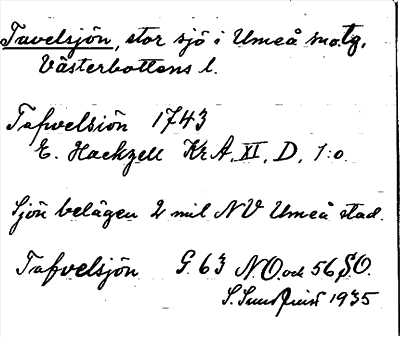 Tavelsjön, stor sjö i Umeå sn o. tg.
Västerbottens l.
Tafwelsiön 1743
E. Hackzell Kr A. XI, D, 1:o.
Sjön belägen 2 mil NV Umeå stad.
Tafvelsjön G. 63 N.O. och 56 S.O.
S. 1935